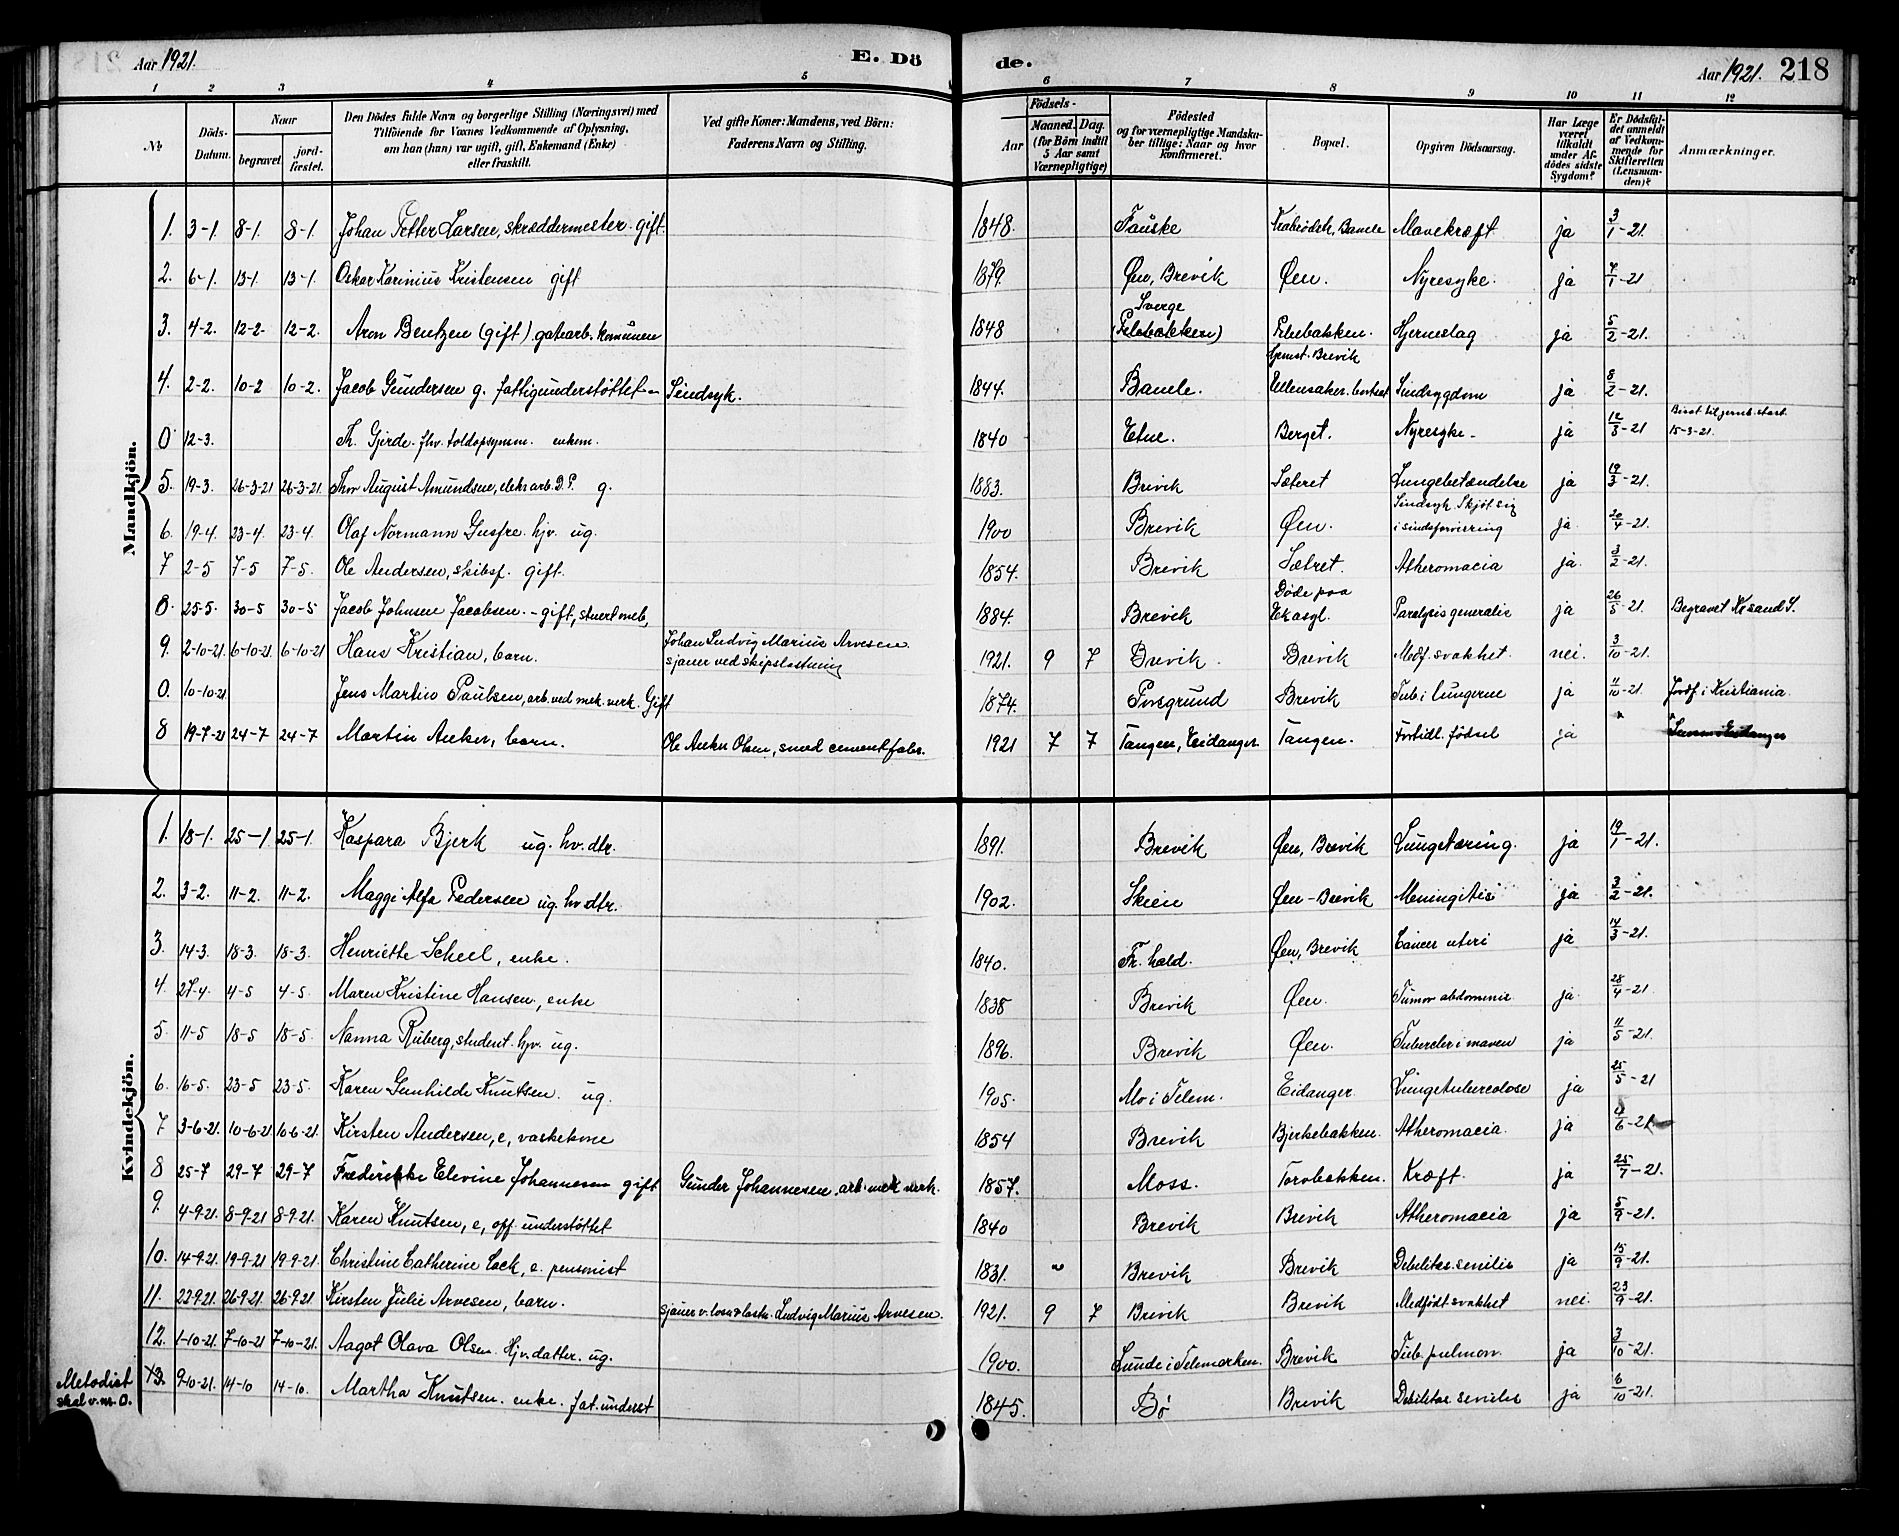 Aar 1921. E. Dö de. Aar 1921. 218
1 2 3 4 5 6 7 8 9 10 11 12
No
Döds-Datum.
Naar begravet jord-fæstet.
Den Dödes fulde Navn og borgerlige Stilling (Næringsvei) med
Tilföiende for Voxnes Vedkommende af Oplysning,
om han (hun) var ugift, gift, Enkemand (Enke)
eller fraskilt.
Ved gifte Koner: Mandens, ved Börn:
Faderens Navn og Stilling.
Födsels-
Aar Maaned. Dag.
(for Börn indtil
5 Aar samt
Værnepligtige)
Födested
og for værnepligtige Mandska-
ber tillige: Naar og hvor
konfirmeret.
Bopæl.
Opgiven Dödsaarsag.
Har Læge
været
tilkaldt
under Af-
dödes sidste
Sygdom?
Er Dödsfal-
det anmeldt
af Vedkom-
mende for
Skifteretten
(Lensman-
den)?
Anmærkninger.
Mandkjön.
1. 3-1. 8-1. 8-1. Johan Petter Larsen, skræddermester. gift 1848. Fauske Bamle Mavekræft ja 3/1-21.
2. 6-1. 13-1. 13-1. Oskar Karinius Kristensen gift 1879. Øen, Brevik Øen. Nyresyke. ja 7/1-21
3. 4-2. 12-2. 12-2. Aron Bentzen (gift) gatearb. komunen 1848 Sverge Hjerneslag ja 5/2-21.
4. 2-2. 10-2 10-2. Jacob Gundersen g. fattigunderstøttet - Sindsyk. 1844. Bamle. Sindsygdom ja 8/2-21.
0 12-3. Th. Gjerde. fhv. toldopsynsm. enkem. 1840 Etne. Berget. Nyresyke - ja 12/3-21 15-3-21.
5. 19-3. 26-3-21 26-3-21. Thor August Amundsen, elekr arb. D.P. g. 1883. Brevik Sæteret Lungebetændelse ja 19/3-21.
6. 19-4. 23-4. 23-4. Olaf Normann Gusfre. hjv. ug. 1900 Brevik Øen. Sindsyk. Skjøt sig
i sindsforvirring ja. 20/4-21.
7 2-5 7-5 7-5. Ole Andersen, skibsf. gift. 1854. Brevik Sætret. Atheromacia ja. 3/2-21.
8. 25-5. 30-5 30-5 Jacob Johnsen Jacobsen. - gift, stuert 1884. Brevik Døde paa
Ekasyl. Paralysis generalis ja 26/5-21. Begravet Krsand S.
9. 2-10-21. 6-10-21. 6-10-21 Hans Kristian, barn. Johan Ludvig Marius Arvesen
sjauer ved skipslastning 1921. 9 7 Brevik. Brevik Medf. svakhet. nei. 3/10-21.
0. 10-10-21. Jens Martin Paulsen, arb. ved mek. verk. Gift 1874. Porsgrund Brevik Tub. i lungerne ja 11/10-21. Jordf. i Kristiania.
8 19-7-21 24-7 24-7 Martin Anker, barn. Ole Anker Olsen, smed cementfabr. 1921 7 7 Tangen, Eidanger Tangen. Fortidl. fødsel ja
Kvindekjön.
1. 18-1. 25-1 25-1 Kaspara Bjerk ug. hv. dtr. 1891. Brevik Øen, Brevik Lungetæring. ja 19/1-21.
2. 3-2. 11-2. 11-2. Maggi Alfa Pedersen ug. hv dtr. 1902. Skien Øen-Brevik Meningitis ja 3/2-21.
3. 14-3. 18-3. 18-3. Henriette Scheel, enke. 1840. Fr. hald. Øen, Brevik Cancer uteri ja 14/3-21.
4. 27-4. 4-5 4-5. Maren Kristine Hansen, enke 1838 Brevik Øen. Tumor abdominis ja 28/4-21.
5. 11-5 18-5 18-5. Nanna Ruberg, student. hjv. ug. 1896. Brevik Øen. Tubercler i maven ja 11/5-21.
6. 16-5. 23-5 23-5. Karen Gunhilde Knutsen. ug. 1905. Mo i Telem. Eidanger Lungetuberculose ja 25/5-21
7 3-6-21. 10-6-21 10-6-21. Kirsten Andersen, e, vaskekone 1854 Brevik Bjerkebakken. Atheromacia. ja 6-21
8 25-7 29-7 29-7 Frederikke Elevine Johannesen gift Gunder Johannesen. arb. mek verk. 1857. Moss. Torvbakken. Kræft. ja 25/7-21.
9. 4-9-21. 8-9-21 8-9-21. Karen Knutsen, e, off. understøttet 1840 Brevik Brevik Atheromacia ja 5/9-21.
10. 14-9-21. 19-9-21 19-9-21. Christine Catherine Lock, e. pensonist 1831. " Brevik Brevik Debilitas senilis ja 15/9-21.
11. 22-9-21. 26-9-21 26-9-21 Kirsten Julie Arvesen, barn. sjauer v. loss & lastn. Ludvig Marius Arvesen. 1921. 9 7 Brevik Brevik Medfødt svakhet nei. 23/9-21.
12. 1-10-21. 7-10-21 7-10-21. Aagot Olava Olsen. Hjv. datter. ug. 1900. Lunde i Telemarken. Brevik Tub. pulmon. ja 3/10-21.
Metodist
skal v. nr. 0.
13. 9-10-21. 14-10 14-10. Martha Knutsen. enke. fat. underst 1845. Bø Brevik Debilitas senilis ja 6/10-21.